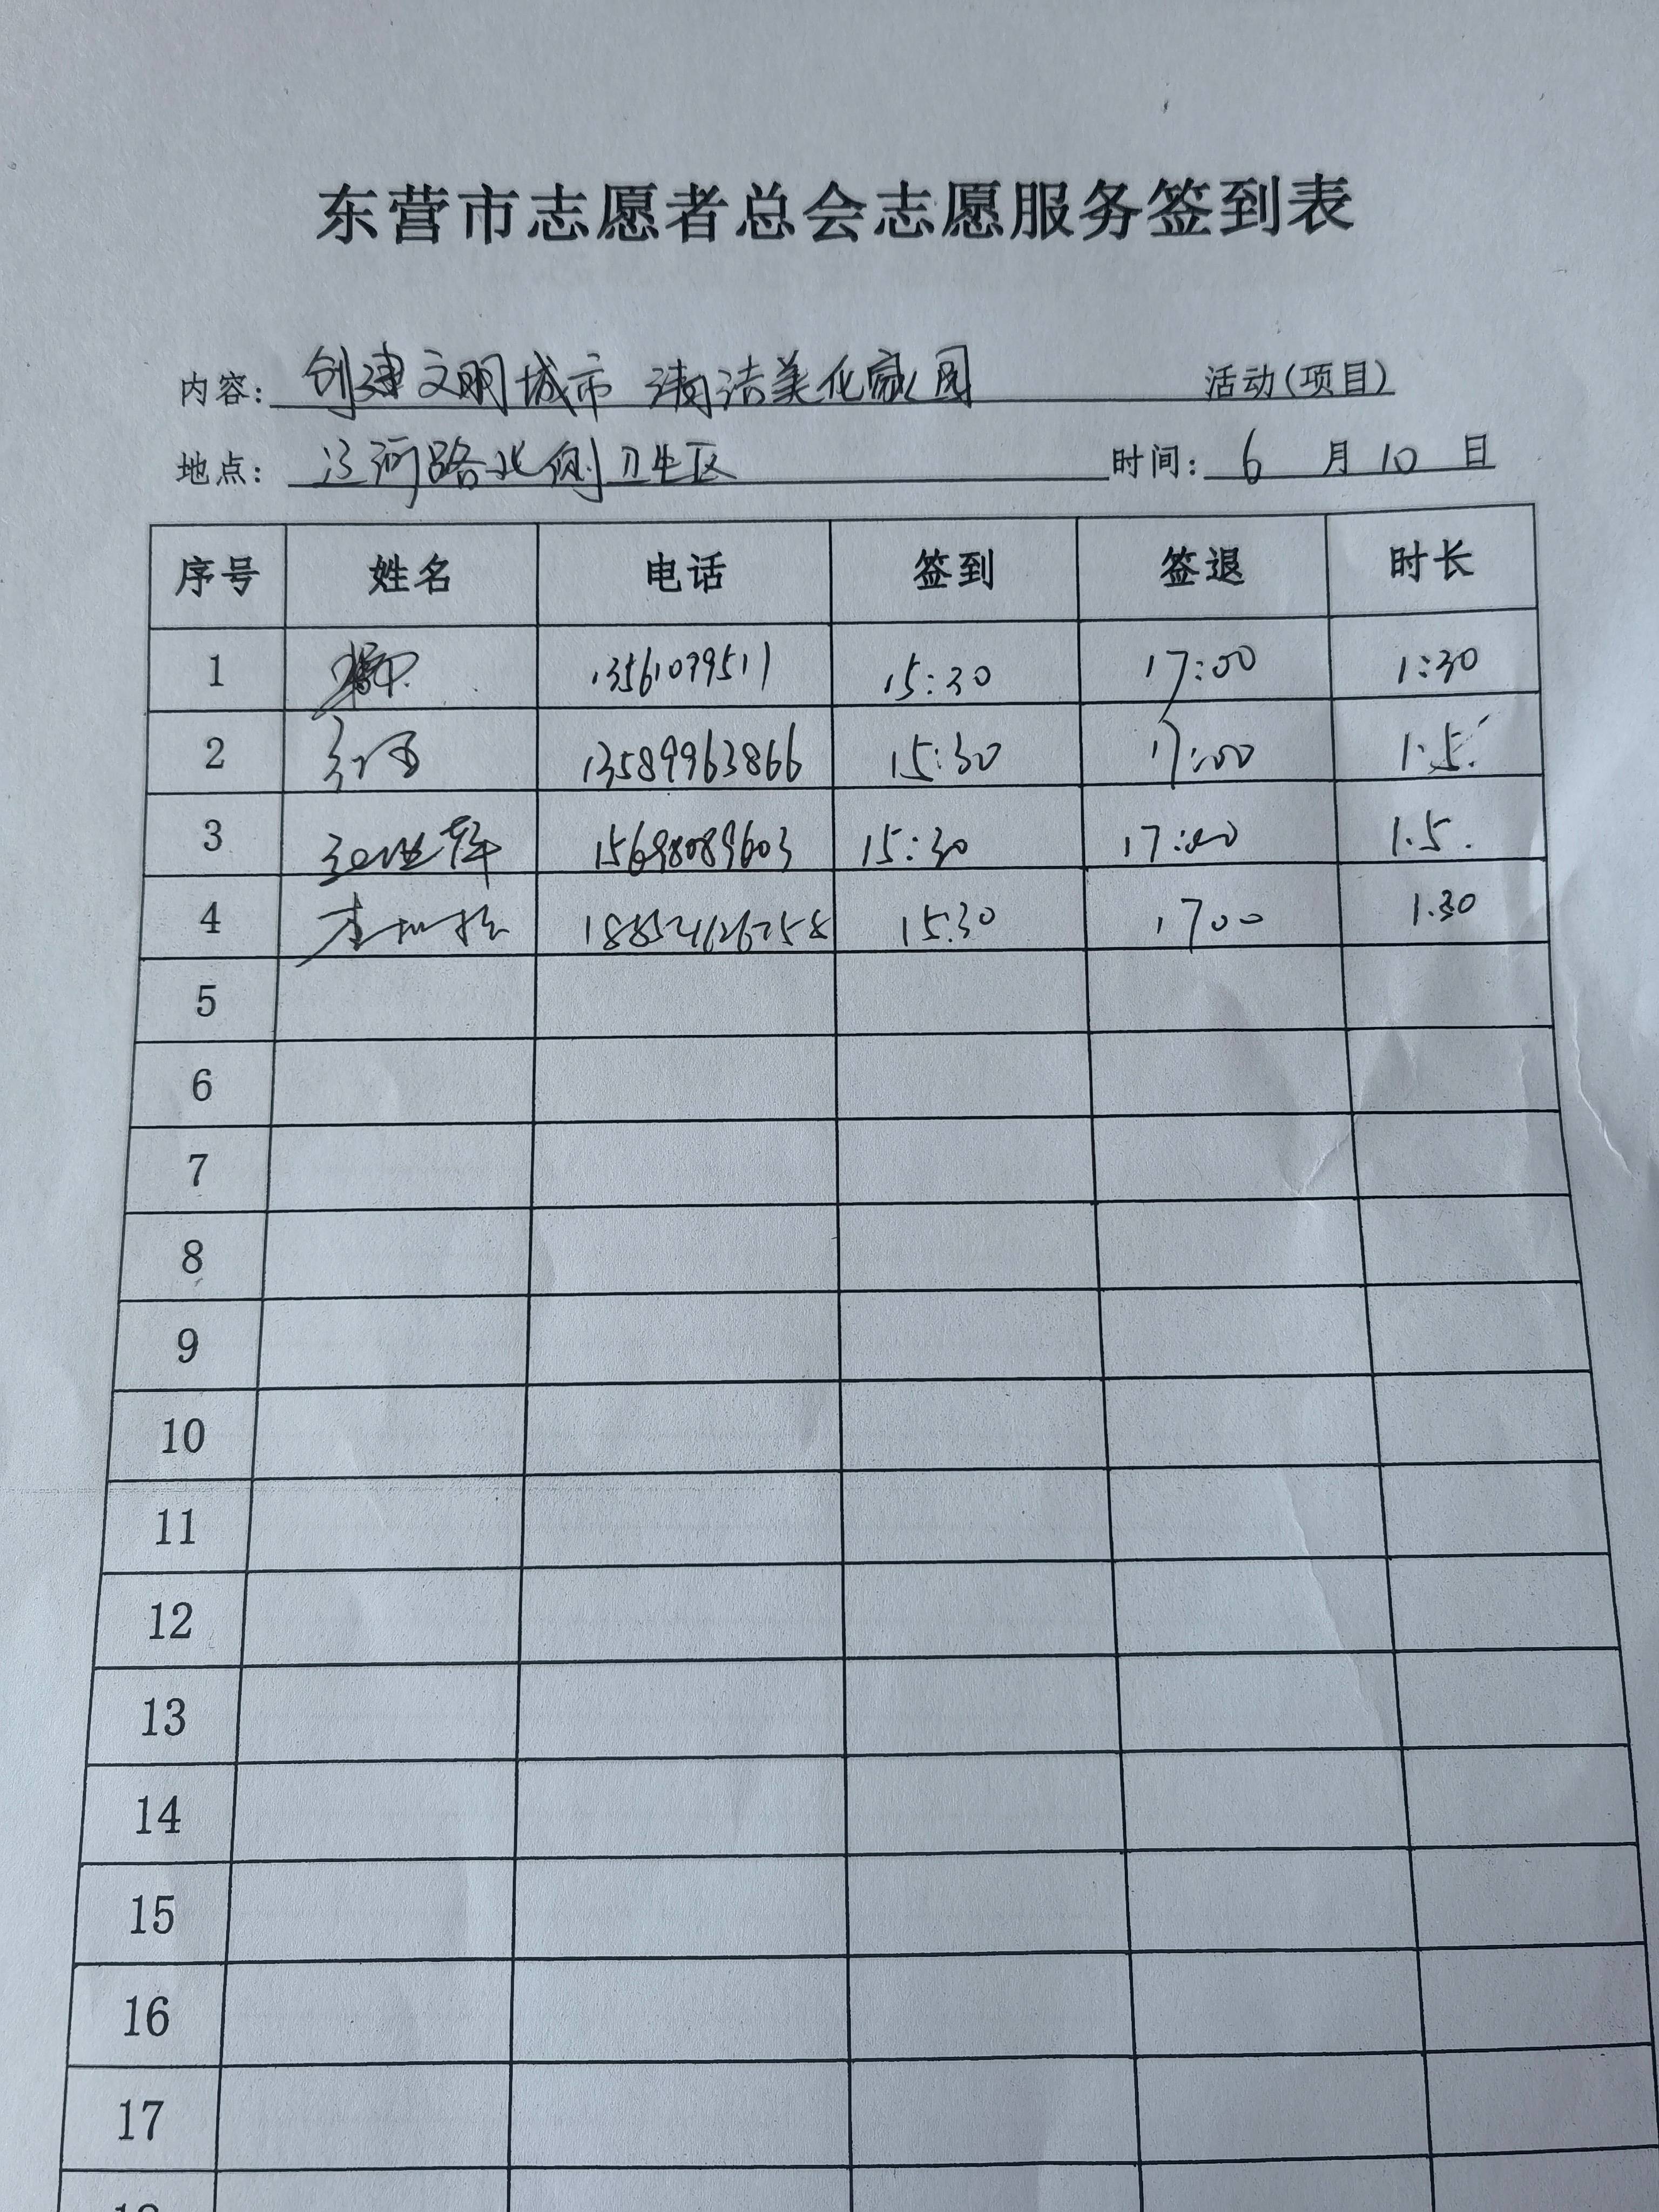 东营市志愿者总会志愿服务签到表
内容: 创建文明城市 清洁美化家园 活动(项目)
地点: 河路北侧卫生区 时间: 6 月 10 日
序号 姓名 电话 签到 签退 时长
1 15:30 17:00 1:30
2 13589963866 15:30 17:00 1.5.
3 15698089603 15:30 17:00 1.5.
4 15.30 1700 1.30
5
6
7
8
9
10
11
12
13
14
15
16
17
18